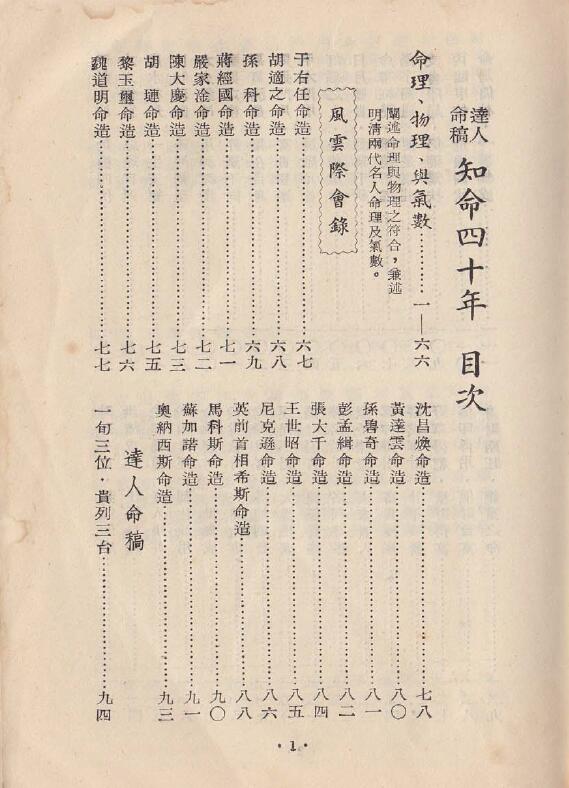 達人命稿 知命四十年 目次
命理、物理、與氣數………一—六六
闡述命理與物理之符合，兼述
明清兩代名人命理及氣數。
風雲際會錄
于右任命造………六七
胡適之命造………六八
孫　科命造………六九
蔣經國命造………七一
嚴家淦命造………七二
陳大慶命造………七三
胡　璉命造………七五
黎玉璽命造………七六
魏道明命造………七七
沈昌煥命造………七八
黃達雲命造………八〇
孫碧奇命造………八一
彭孟緝命造………八二
張大千命造………八四
王世昭命造………八五
尼克遜命造………八六
英前首相希斯命造………八八
馬科斯命造………九〇
蘇加諾命造………九一
奧納西斯命造………九三
達人命稿
一旬三位．貴列三台………九四
·1·